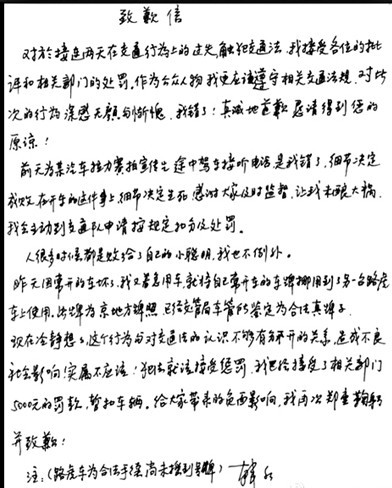 致歉信
对于接连两天在交通行为上的过失,触犯交通法,我接受各位的批
评和相关部门的处罚,作为公众人物我更应该遵守相关交通法规,对此
次的行为深感无颜与惭愧,我错了!真诚地道歉恳请得到您的
原谅!
前天为某汽车接力赛拍宣传片途中驾车接听电话是我错了,细节决定
成败,在开车的这件事上,细节决定生死,感谢大家及时监督,让我未酿大祸,
我会主动到交通队申请按规定扣分及处罚。
人很多时候都是败给了自己的小聪明,我也不例外。
昨天因常开的车坏了,我又着急用车就将自己常开车的车牌挪用到了另一台路虎
车上使用。此牌为京地方牌照,已经交管局车管所鉴定为合法真牌子。
现在冷静想想,这个行为与对交通法的认识不够有分不开的关系,造成不良
社会影响!实属不应该!犯法就该接受惩罚,我已经接受了相关部门
5000元的罚款,暂扣车辆。给大家带来的负面影响,我再次郑重鞠躬
并致歉!
注:(路虎车为合法手续尚未换到号牌)